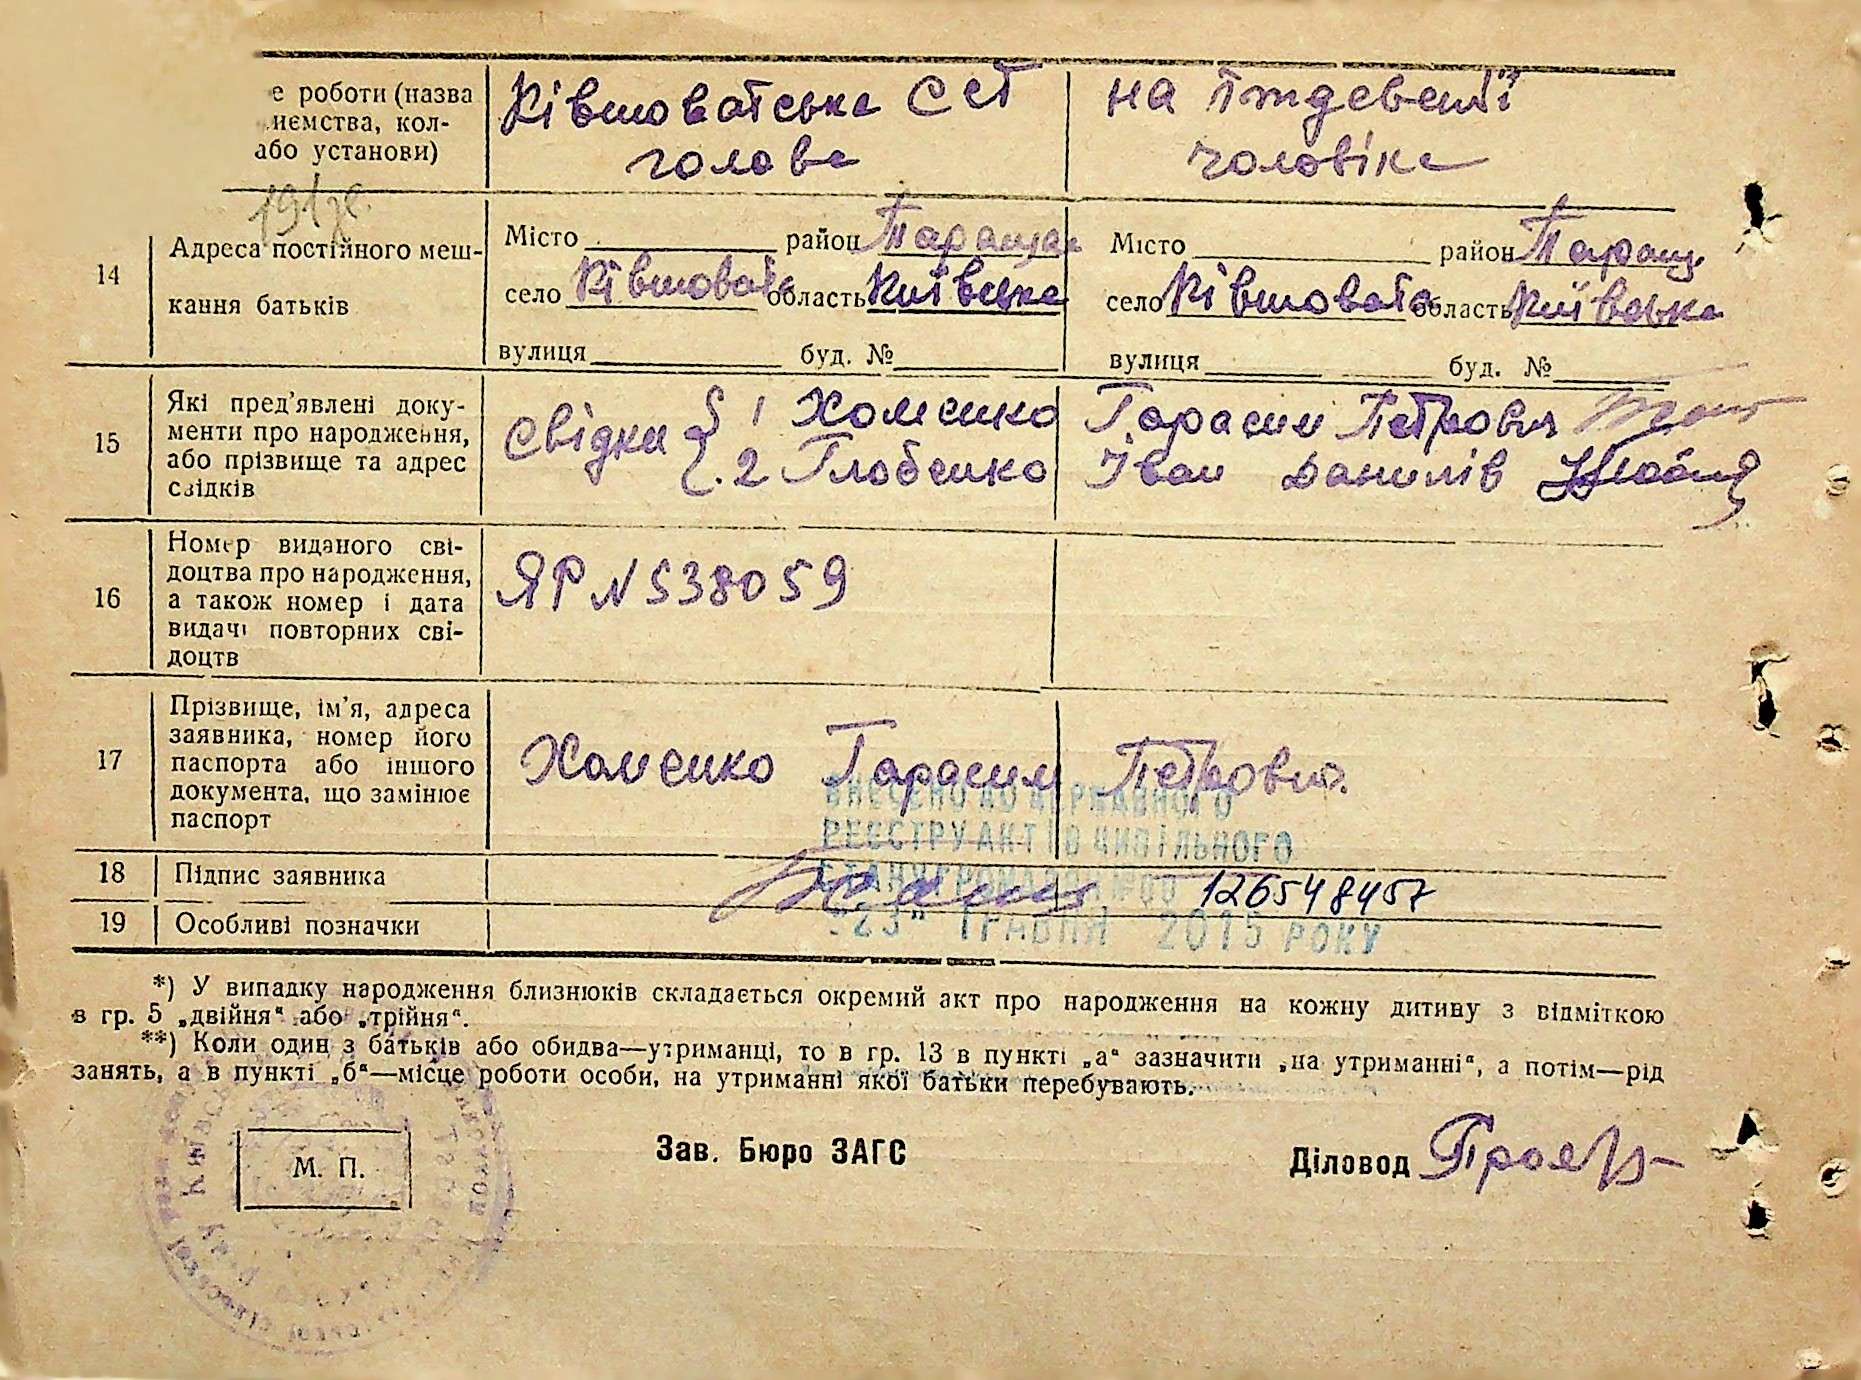 е роботи (назва
иємства, кол-
або установи)
Ківшоватська ССТ
голова
на іждевенії
чоловіка
14
Адреса постійного меш-
кання батьків
Місто район Таращан
село Ківшовата область Київська
вулиця буд. №
Місто район Таращ.
село Ківшовата область Київська
вулиця буд. №
15
Які пред'явлені доку-
менти про народження,
або прізвище та адрес
свідків
Свідки 1 Хоменко Гарасим Петрович
2 Глобенко Іван Данилів
16
Номер виданого сві-
доцтва про народження,
а також номер і дата
видачі повторних сві-
доцтв
ЯР N 538059
17
Прізвище, ім'я, адреса
заявника, номер його
паспорта або іншого
документа, що замінює
паспорт
Хоменко Гарасим Петрович.
ВНЕСЕНО ДО ДЕРЖАВНОГО
РЕЄСТРУ АКТІВ ЦИВІЛЬНОГО
СТАНУ ГРОМАДЯН
18
Підпис заявника
126548457
"23" ТРАВНЯ 2015 РОКУ
19
Особливі позначки
*) У випадку народження близнюків складається окремий акт про народження на кожну дитину з відміткою
в гр. 5 „двійня" або „трійня".
**) Коли один з батьків або обидва—утриманці, то в гр. 13 в пункті „а" зазначити „на утриманні", а потім—рід
занять, а в пункті „б"—місце роботи особи, на утриманні якої батьки перебувають.
М. П.
Зав. Бюро ЗАГС
Діловод